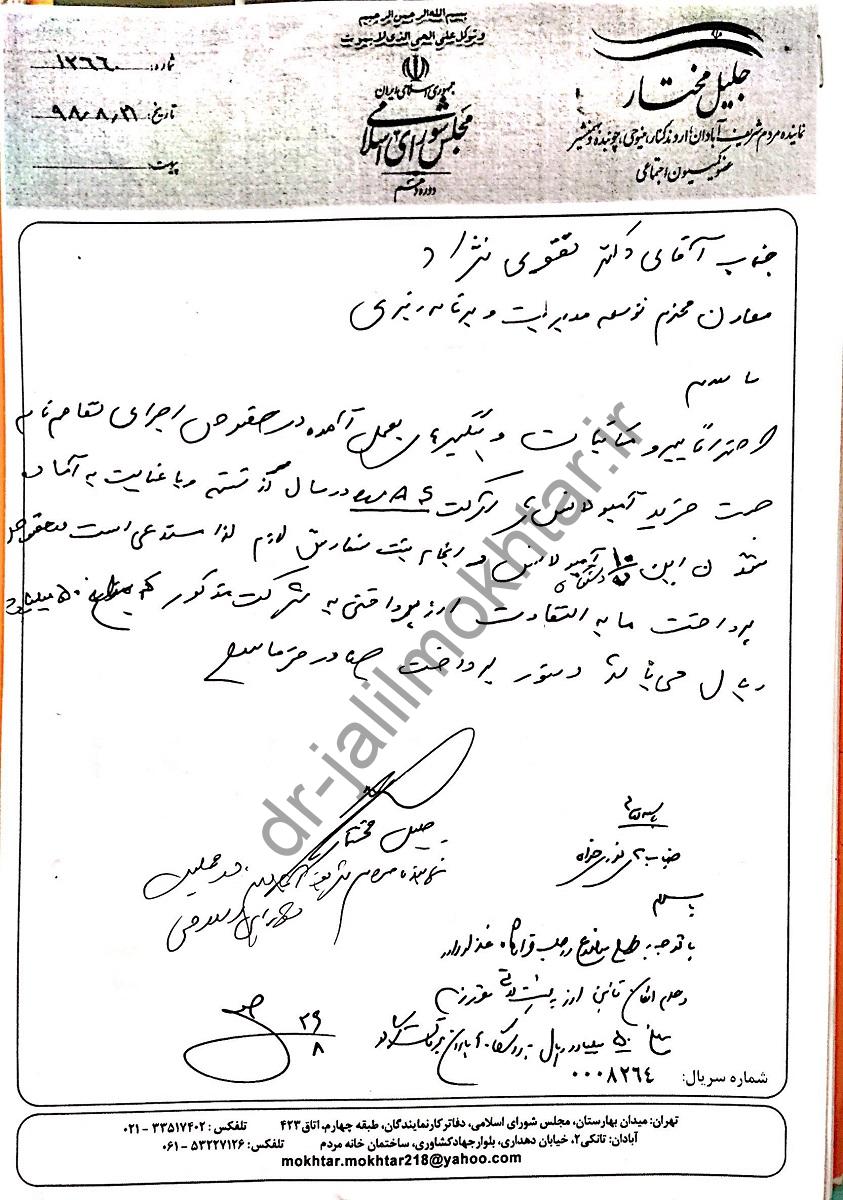 بسم الله الرحمن الرحیم
و توکل علی الحی الذی لایموت
جمهوری اسلامی ایران
مجلس شورای اسلامی
دوره دهم
جلیل مختار
نماینده مردم شریف آبادان، اروندکنار، مینوحی، چوبنده و بهمنشیر
عضو کمیسیون اجتماعی
شماره: ۱۲۶۶۰
تاریخ: ۹۸/۸/۲۱
پیوست:
جناب آقای دکتر تقوی نژاد
معاون محترم توسعه مدیریت و برنامه ریزی
با سلام
احتراماً پیرو مکاتبات و پیگیری های بعمل آمده در خصوص اجرای تفاهم نامه
جهت خرید آمبولانس از شرکت در سال گذشته و با عنایت به آماده
شدن این ۱۰ دستگاه آمبولانس و انجام ثبت سفارش لازم لذا مستدعی است در خصوص
پرداخت مابه التفاوت ارز پرداختی به شرکت مذکور که ۵۰ میلیارد
ریال می باشد دستور پرداخت صادر فرمایید
جلیل مختار
نماینده مردم شریف آبادان در مجلس
شورای اسلامی
باسمه تعالی
جناب آقای نوری خواه
با سلام
با توجه به
ارز
مبلغ ۵۰ میلیارد ریال
۲۹/۸
شماره سریال: ۰۰۰۸۲۶۴
تهران: میدان بهارستان، مجلس شورای اسلامی، دفاتر کار نمایندگان، طبقه چهارم، اتاق ۴۲۳ تلفکس: ۳۳۵۱۷۴۰۲ - ۰۲۱
آبادان: تانکی۲، خیابان دهداری، بلوار جهاد کشاوری، ساختمان خانه مردم تلفکس: ۵۳۲۲۷۱۲۶ - ۰۶۱
mokhtar.mokhtar218@yahoo.com
dr-jalilmokhtar.ir